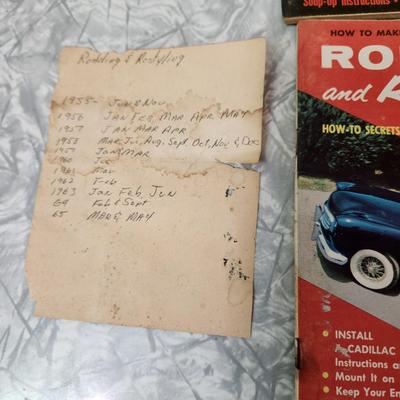 Rodding & Restyling
1955- Jun & Nov
1956 JAN FEB MAR APR MAY
1957 JAN MAR APR
1958 MAR, Jul, Aug, Sept, Oct, Nov, & Dec
1959 Jan, MAR
1960
1961 Mar
1962 Feb
1963 Jan Feb, JUN
64 Feb & Sept
65 MAR & MAY
Soup-Up Instructions
HOW TO MAKE
RO
and R
HOW-TO SECRETS
• INSTALL
A CADILLAC
Instructions a
• Mount It on
• Keep Your En